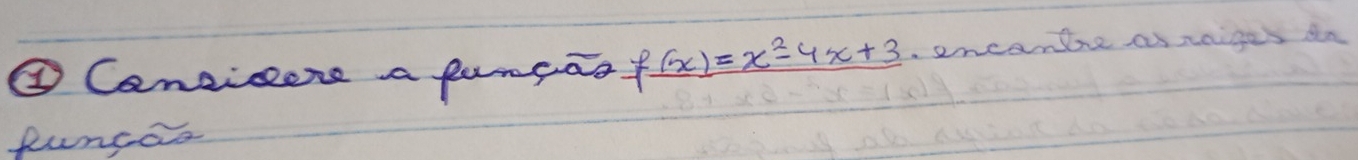 ① Considere a função f(x)=x²-4x+3. encontre as raizes da
função